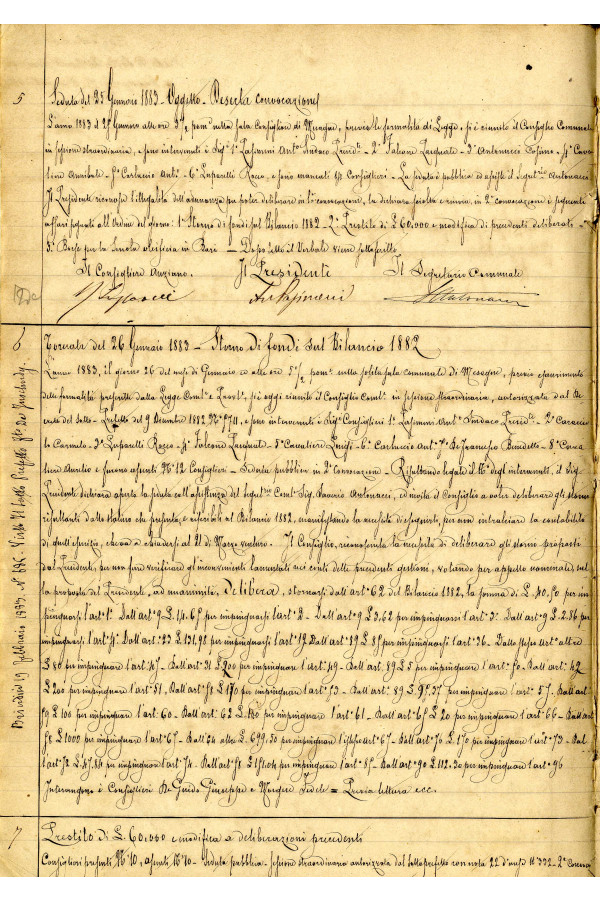 5
Seduta del 25 Gennaro 1883 - Oggetto - Deserta convocazione
L'anno 1883 il 25 Gennaro alle ore 3 1/2 pom. nella sala Consigliare di Mesagne, previe le formalità di Legge, si è riunito il Consiglio Comunale
in sessione straordinaria, e sono intervenuti i Sigri 1° Lasorini Antº Sindaco Presidte - 2° Falcone Pasquale - 3° Antonucci Cosimo - 4° Cava
liere Annibale - 5° Carluccio Antº - 6° Luparelli Rocco, e sono mancati Consiglieri - La seduta è pubblica ed assiste il Segretrio Antonacci
Il Presidente riconosce l'illegalità dell'adunanza per poter deliberare in 1ª convocazione, la dichiara sciolta e rinvia in 2ª convocazione i seguenti
affari segnati all'Ordine del giorno: 1° Storno di fondi sul Bilancio 1882 - 2° Prestito di £ 60,000 e modifica di precedenti deliberati
3° Borse per la Scuola olearia in Bari - Dopo letto il Verbale viene sottoscritto
Il Consigliere Anziano. Il Presidente Il Segretario Comunale
6
Tornata del 26 Gennaio 1883 - Storno di fondi sul Bilancio 1882
L'anno 1883, il giorno 26 del mese di Gennaio ad alle ore 5 1/2 pom. nella solita sala comunale di Mesagne, previo esaurimento
delle formalità prescritte dalla Legge Comle e Provle, si è oggi riunito il Consiglio Comle in sessione straordinaria, autorizzata dal De
creto del Sotto-Prefetto del 9 Dicembre 1882 Nº 8711, e sono intervenuti i Sigri Consiglieri 1° Lasorini Antº Sindaco Presidte - 2° Caraccio
lo Carmelo - 3° Luparelli Rocco - 4° Falcone Pasquale - 5° Cavaliere Luigi - 6° Carluccio Antº - 7° De Francesco Benedetto - 8° Cava
liere Aurelio e furono assenti Nº 12 Consiglieri - Seduta pubblica in 2ª Convocazione - Risultando legale il Nº degl'intervenuti, il Sig.
Presidente dichiara aperta la seduta coll'assistenza del Segretrio Comle Sig. Antonacci, ed invita il Consiglio a voler deliberare gli storni
risultanti dallo stato che presenta, e riferibili al Bilancio 1882, manifestando la necessità di eseguirsi, per non intralciare la contabilità
di quell'esercizio, che va a chiudersi al 31 di Marzo venturo. Il Consiglio, riconosciuta la necessità di deliberare gli storni proposti
dal Presidente, per non fare verificare gli inconvenienti lamentati nei conti delle precedenti gestioni, votando per appello nominale, sul
la proposta del Presidente, ad unanimità, Delibera, stornarsi dall'artº 62 del Bilancio 1882, la somma di £ 40,50 per im
pinguarsi l'artº 1° Dall'artº 9 £ 14.65 per impinguarsi l'artº 2 - Dall'artº 9 £ 3,62 per impinguarsi l'artº 3° Dall'artº 9 £ 2.86 per
impinguarsi l'artº 4° Dall'artº 23 £ 131,98 per impinguarsi l'artº 12 Dall'artº 89 £ 85 per impinguarsi l'artº 36 - Dallo stesso artº altre
£ 80 per impinguare l'artº 45 - Dall'artº 31 £ 200 per impinguare l'artº 49 - Dall'artº 89 £ 5 per impinguare l'artº 50 - Dall'artº 42
£ 200 per impinguare l'artº 51, Dall'artº 58 £ 170 per impinguare l'artº 53 - Dall'artº 89 £ 95.37 per impinguare l'artº 55 - Dall'artº
59 £ 100 per impinguare l'artº 60 - Dall'artº 62 £ 180 per impinguare l'artº 61 - Dall'artº 65 £ 20 per impinguare l'artº 66 - Dall'artº
58 £ 1000 per impinguare l'artº 67 - Dall'64 altre £ 699,50 per impinguare l'istesso artº 67 - Dall'artº 70 £ 170 per impinguare l'artº 73 - Dal
l'artº 72 £ 47,84 per impinguare l'artº 74 - Dall'artº 58 per impinguare l'artº 85 - Dall'artº 90 £ 112.30 per impinguare l'artº 96
Intervengono i Consiglieri De Guido Giuseppe e Morgese Fedele = Previa lettura ecc.
Brindisi 19 Febbraio 1883. Nº 696. Visto Il Sotto Prefetto
7
Prestito di £ 60,000 e modifica a deliberazioni precedenti
Consiglieri presenti Nº 10, assenti Nº 10 - Seduta pubblica - sessione straordinaria autorizzata dal Sotto prefetto con nota 22 d'. Nº 332 - 2ª Convoca